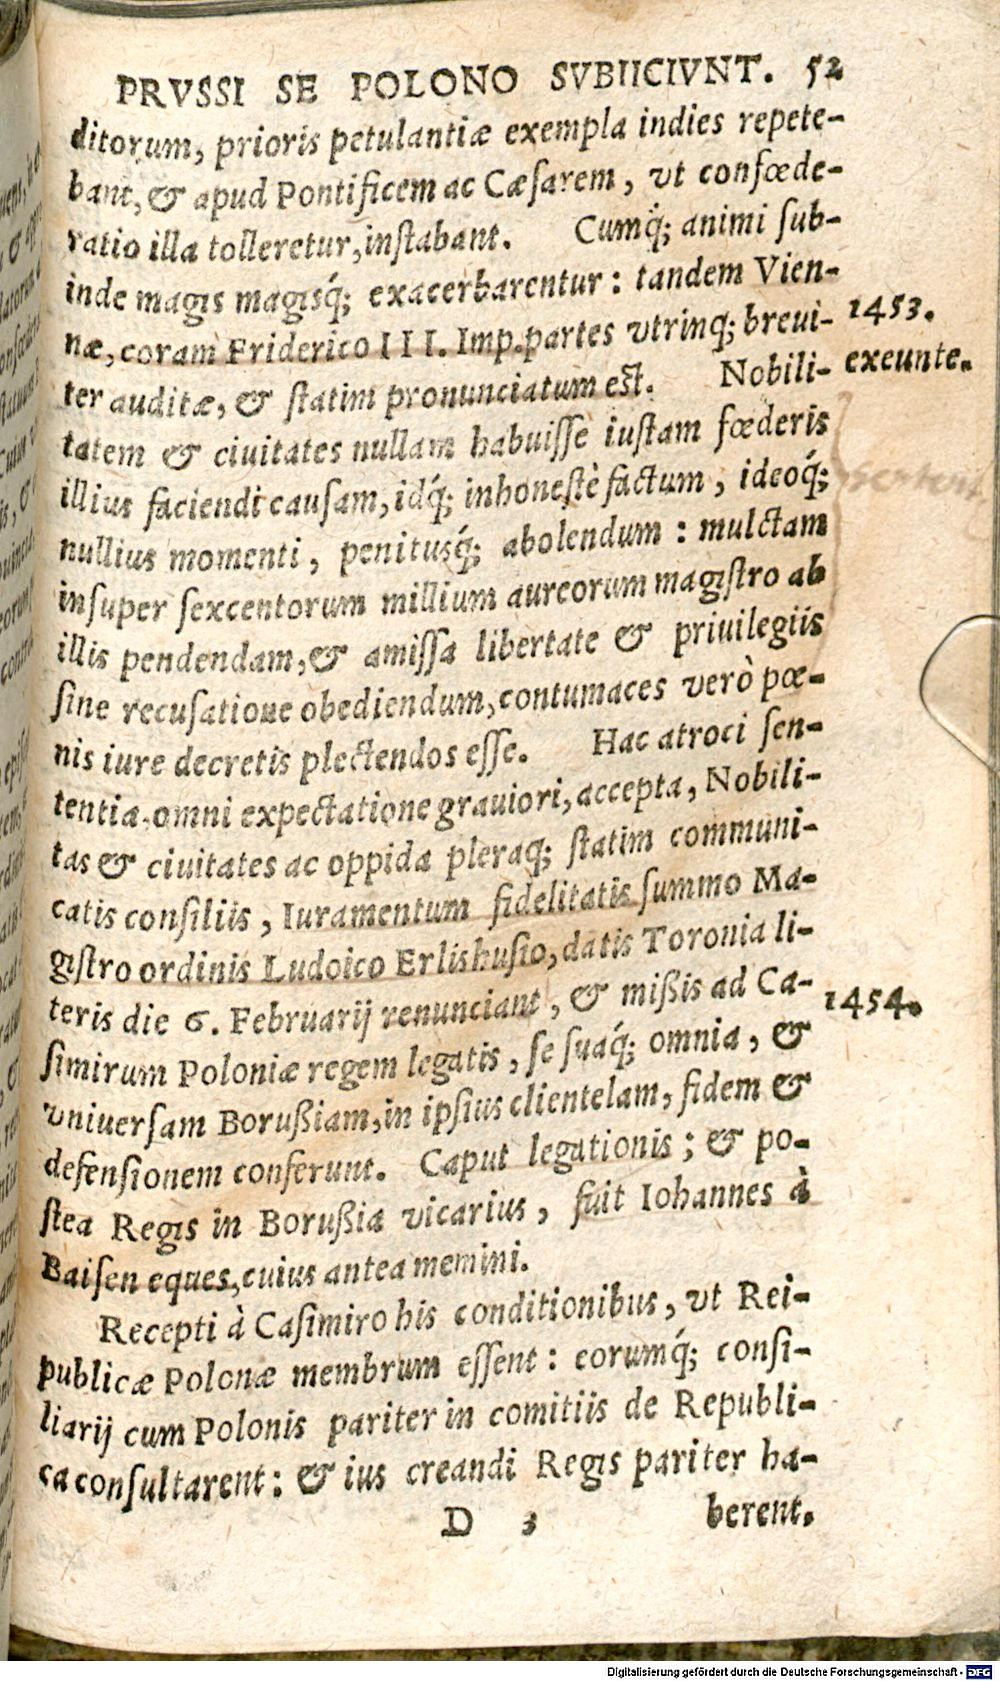 PRVSSI SE POLONO SVBIICIVNT. 52
ditorum, prioris petulantiæ exempla indies repete-
bant, & apud Pontificem ac Cæsarem, vt confœde-
ratio illa tolleretur, instabant. Cumq́; animi sub-
inde magis magisq́; exacerbarentur: tandem Vien-
næ, coram Friderico III. Imp. partes vtrinq; breui-
1453.
ter auditæ, & statim pronunciatum est. Nobili-
exeunte.
tatem & ciuitates nullam habuisse iustam fœderis
illius faciendi causam, idq́; inhonestè factum, ideoq́;
nullius momenti, penitusq́; abolendum: mulctam
insuper sexcentorum millium aureorum magistro ab
illis pendendam, & amissa libertate & priuilegiis
sine recusatione obediendum, contumaces verò pœ-
nis iure decretis plectendos esse. Hac atroci sen-
tentia omni expectatione grauiori, accepta, Nobili-
tas & ciuitates ac oppida pleraq; statim communi-
catis consiliis, Iuramentum fidelitatis summo Ma-
gistro ordinis Ludoico Erlishusio, datis Toronia li-
teris die 6. Februarij renunciant, & mißis ad Ca-
1454.
simirum Poloniæ regem legatis, se suaq́; omnia, &
vniuersam Borußiam, in ipsius clientelam, fidem &
defensionem conferunt. Caput legationis; & po-
stea Regis in Borußia vicarius, fuit Iohannes à
Baisen eques, cuius antea memini.
Recepti à Casimiro his conditionibus, vt Rei-
publicæ Polonæ membrum essent: eorumq́; consi-
liarij cum Polonis pariter in comitiis de Republi-
ca consultarent: & ius creandi Regis pariter ha-
D 3 berent.
Digitalisierung gefördert durch die Deutsche Forschungsgemeinschaft - DFG